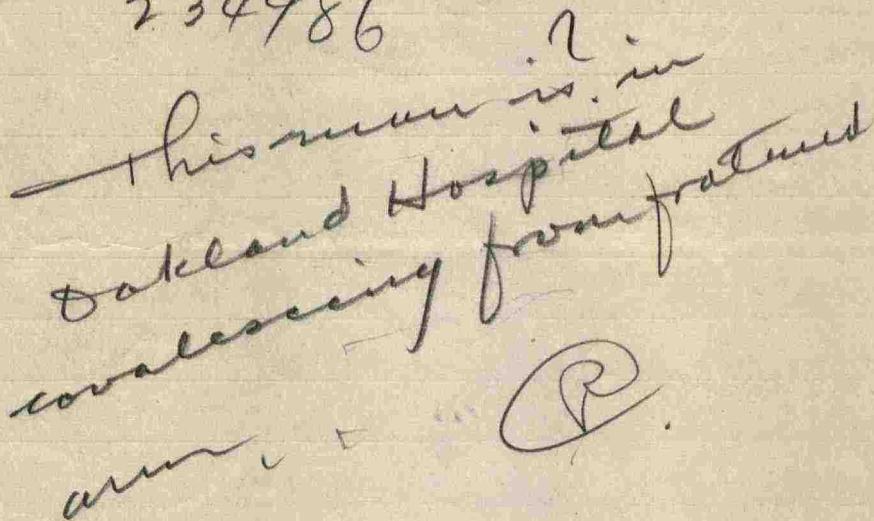 234986
?
This man is in
Oakland Hospital
covalescing from fratured
arm.
R